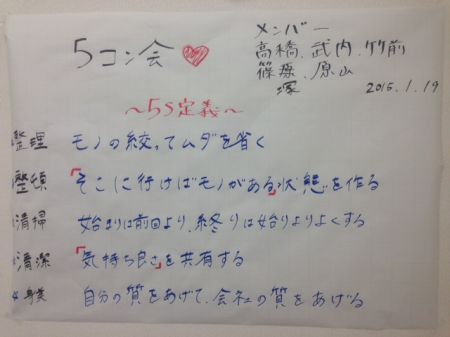 5コン会♥
メンバー
高橋、武内、竹前
篠原、原山
塚
2015.1.19
〜5S定義〜
整理 モノの絞ってムダを省く
整頓 「そこに行けばモノがある」状態を作る
清掃 始まりは前回より、終りは始りよりよくする
清潔 「気持ち良さ」を共有する
自分の質をあげて、会社の質をあげる